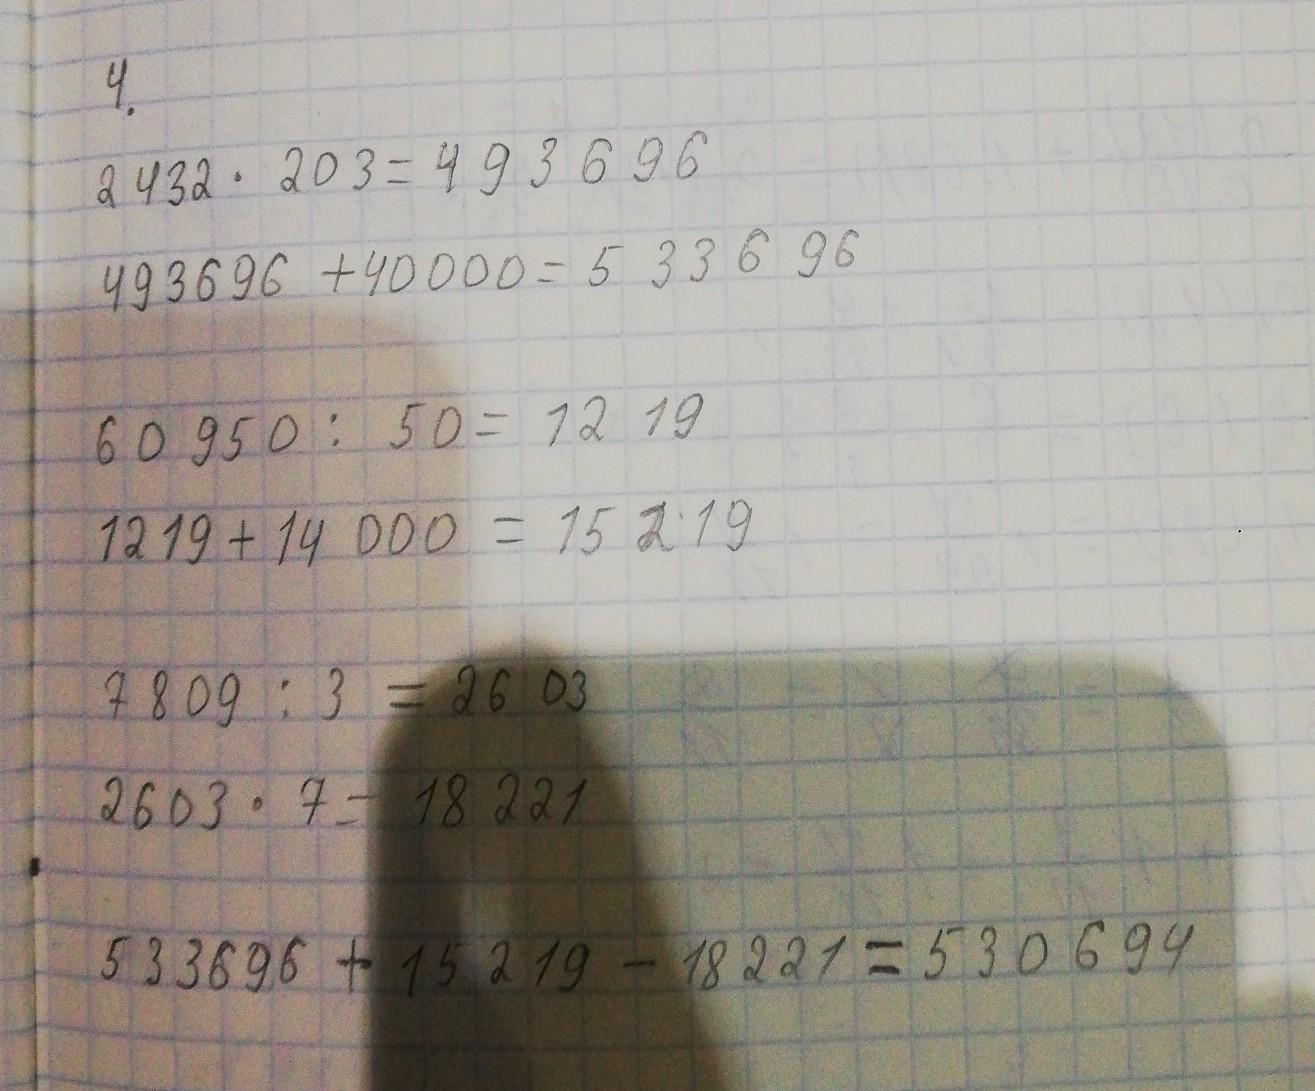 4.
2432 · 203 = 493696
493696 + 40000 = 533696
60950 : 50 = 1219
1219 + 14000 = 15219
7809 : 3 = 2603
2603 · 7 = 18221
533696 + 15219 - 18221 = 530694